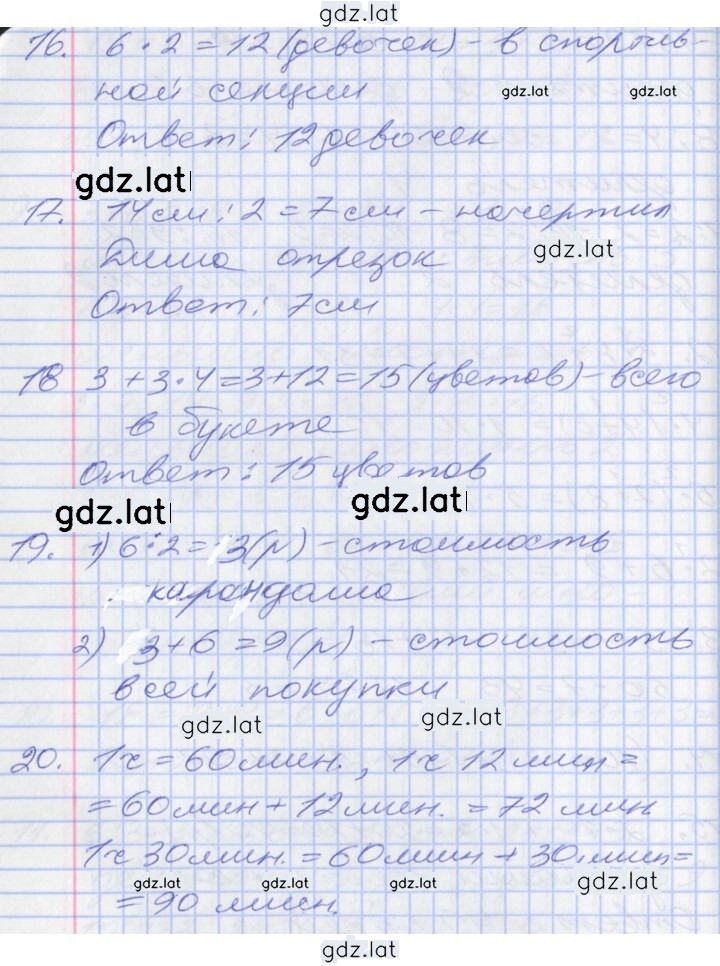 gdz.lat
16. 6 · 2 = 12 (девочек) - в спортив-
ной секции
gdz.lat gdz.lat
Ответ: 12 девочек
gdz.lat
17. 14 см : 2 = 7 см - начертил
gdz.lat
Дима отрезок
Ответ: 7 см
18 3 + 3 · 4 = 3 + 12 = 15 (цветов) - всего
в букете
Ответ: 15 цветов
gdz.lat gdz.lat
19. 1) 6 : 2 = 3 (р) - стоимость
карандаша
2) 3 + 6 = 9 (р) - стоимость
всей покупки
gdz.lat gdz.lat
20. 1 ч = 60 мин., 1 ч 12 мин =
= 60 мин + 12 мин. = 72 мин
1 ч 30 мин. = 60 мин + 30 мин =
gdz.lat gdz.lat gdz.lat gdz.lat
= 90 мин.
gdz.lat